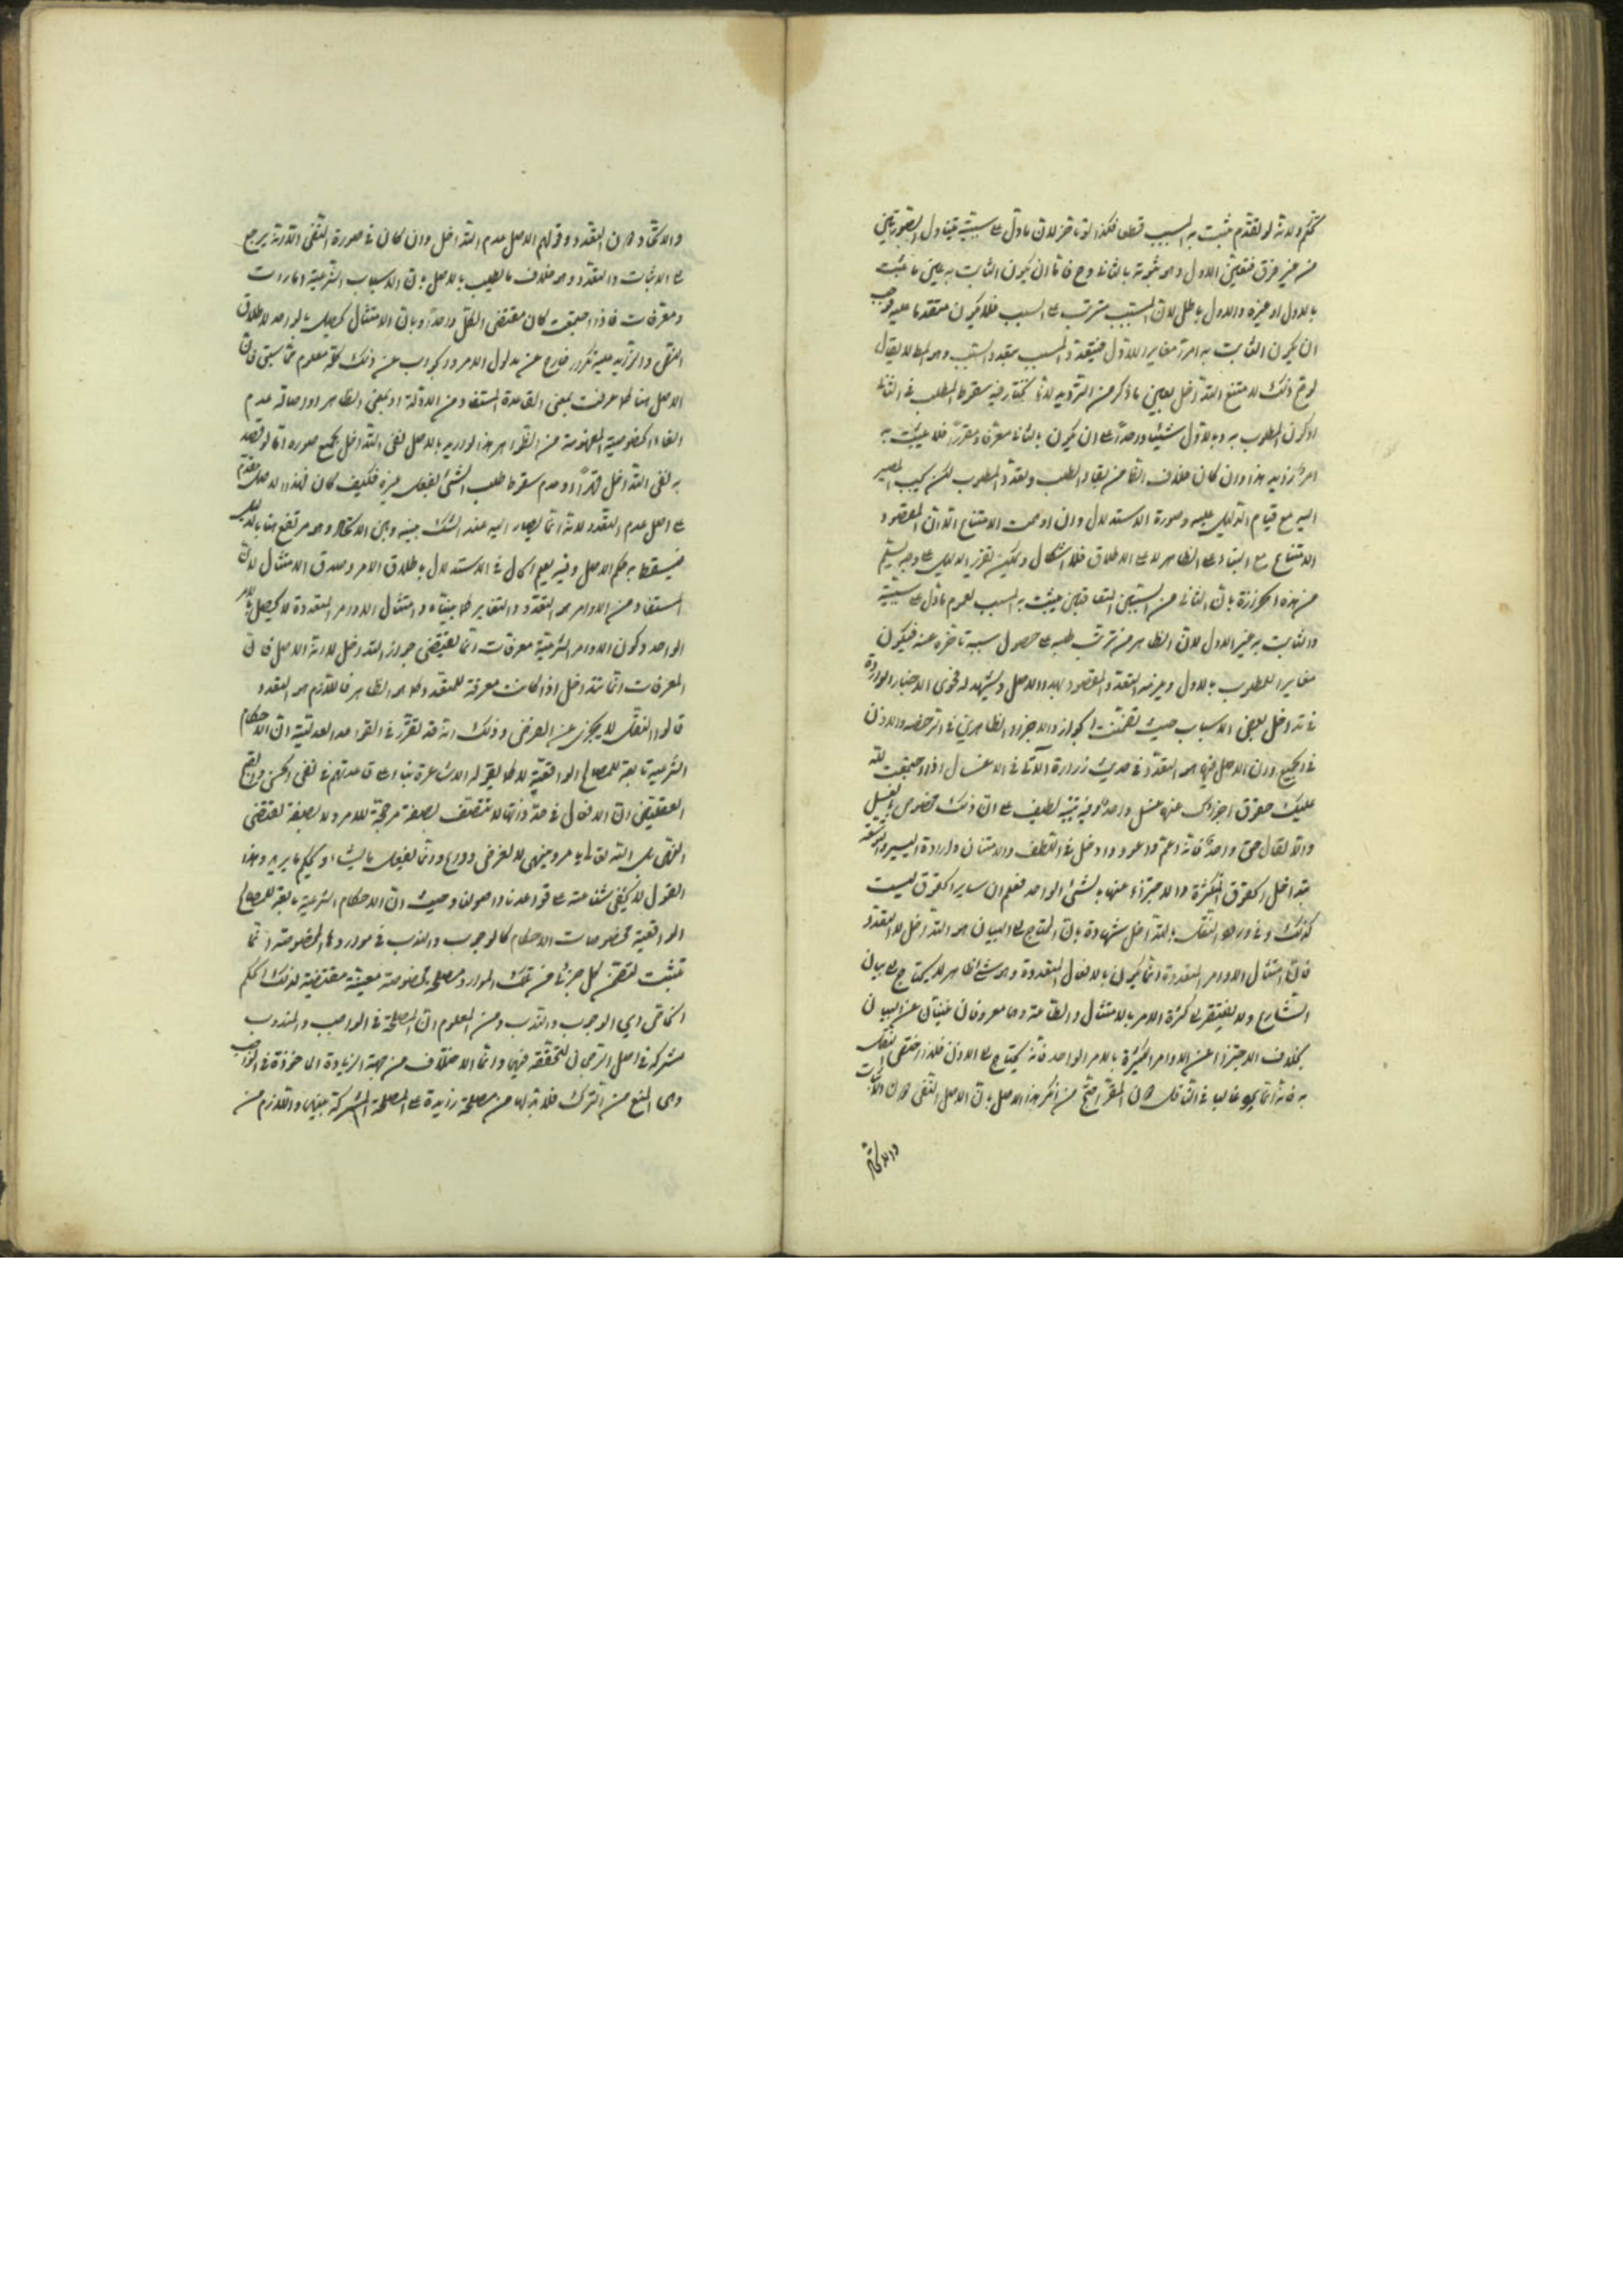 تحكم ولانه لو تقدم ثبت به المسبب قطعا فكذا لو تاخر لان ما دل على سببيته يتناول الصورتين
من غير فرق فتعين الاول وهو ثبوته بالثاني وح فاما ان يكون الثابت به عين ما ثبت
بالاول او غيره والاول باطل لان المسبب مترتب على السبب فلا يكون متقدما عليه فوجب
ان يكون الثابت به امرا مغايرا للاول فيتعدد المسبب بتعدد السبب وهو المط لا يقال
لو تم ذلك لامتنع التداخل بعين ما ذكر من الترديد لانا نختار فيه سقوط الطلب في الثاني
او كون المطلوب به وبالاول شيئا واحدا على ان يكون بالثاني معرفا ومقررا فلا يثبت به
امر زايد هذا وان كان خلاف الظاهر من بقاء الطلب وتعدد المطلوب لكن يجب المصير
اليه مع قيام الدليل عليه وصورة الاستدلال وان اوهمت الامتناع الا ان المقصود
الامتناع مع البناء على الظاهر لا على الاطلاق فلا اشكال ويمكن تقرير الدليل على وجه يسلم
من هذه الحزازة بان الثاني من السببين المتعاقبين يثبت به المسبب لعموم ما دل على سببيته
والثابت به غير الاول لان الظاهر من ترتب طلبه على حصول سببه تاخره عنه فيكون
مغايرا للمطلوب بالاول ويلزمه التعدد والمقصود بهذا الاصل ويشهد له فحوى الاخبار الواردة
في تداخل بعض الاسباب حيث تضمنت الجواز والاجزاء الظاهرين في الرخصة والاذن
في الجميع وان الاصل فيها هو التعدد وفي حديث زرارة الآتي في الاغسال اذا اجتمعت لله
عليك حقوق اجزأك عنها غسل واحد وفيه تنبيه لطيف على ان ذلك مخصوص بالغسل
والا لقال حق واحد فانه اعم واعود وادخل في اللطف والامتنان وارادة اليسر والتوسعة
بتداخل الحقوق المتكثرة والاجتزاء عنها بالشيء الواحد فعلم ان ساير الحقوق ليست
كذلك وفي ورود النقل بالتداخل شهادة بان المحتاج الى البيان هو التداخل لا التعدد
فان امتثال الاوامر المتعددة انما يكون بالافعال المتعددة وهو شيء ظاهر لا يحتاج الى بيان
الشارع ولا يفتقر الى كثرة الامر بالامتثال والطاعة وهما معروفان غنيان عن البيان
بخلاف الاجتزا عن الاوامر الكثيرة بالامر الواحد فانه يحتاج الى الاذن فلذا اختص النقل
به فانه انما يجيء غالبا في الناقل دون المقرر احتج من انكر هذا الاصل بان الاصل النفي دون الاثبات
والاتحاد
والاتحاد دون التعدد وقولهم الاصل عدم التداخل وان كان في صورة النفي الا انه يرجع
الى الاثبات والتعدد وهو خلاف ما يطلب بالاصل وبان الاسباب الشرعية امارات
ومعرفات فاذا اجتمعت كان مقتضى الكل واحدا وبان الامتثال يحصل بالواحد لاطلاق
النص والزايد عليه تكرار خارج عن مدلول الامر والجواب عن ذلك كله معلوم مما سبق فان
الاصل هنا كما عرفت بمعنى القاعدة المستفاد من الادلة او بمعنى الظاهر او اصالة عدم
الغاء الخصوصية المفهومة من الظواهر هذا لو اريد بالاصل نفي التداخل بجميع صوره اما لو قصد
به نفي التداخل قهرا وعدم سقوط طلب الشيء بفعل غيره فكيف كان فهذا الاصل مقدم
على اصل عدم التعدد لانه انما يصار اليه عند الشك بينه وبين الاتحاد وهو مرتفع هنا بالدليل
فيسقط به حكم الاصل وفيه يعلم الحال في الاستدلال باطلاق الامر وصدق الامتثال لان
المستفاد من الاوامر هو التعدد والتغاير كما بيناه وامتثال الاوامر المتعددة لا يحصل بالامر
الواحد وكون الاوامر الشرعية معرفات انما يقتضي جواز التداخل لا انه الاصل فان
المعرفات انما تتداخل اذا كانت معرفة للمتعدد كما هو الظاهر فاللازم هو التعدد
قالوا النفل لا يجزي عن الفرض وذلك انه قد تقرر في القواعد العدلية ان الاحكام
الشرعية تابعة للمصالح الواقعية لا كما يقوله الاشاعرة بناء على قاعدتهم في نفي الحسن والقبح
العقليين ان الافعال في حد ذاتها لا تتصف بصفة مرجحة للامر ولا بصفة تقتضي
النهي بل الله تعالى يامر وينهى لا لغرض وداع وانما يفعل ما يشاء ويحكم ما يريد وهذا
القول لا يخفى شناعته على قواعدنا واصولنا وحيث ان الاحكام الشرعية تابعة للمصالح
الواقعية فخصوصيات الاحكام كالوجوب والندب في مواردها المخصوصة انما
تثبت لتضمن كل جزئي من تلك الموارد مصلحة مخصوصة معينة مقتضية لذلك الحكم
الخاص اي الوجوب والندب ومن المعلوم ان المصلحة في الواجب والمندوب
مشتركة في اصل الرجحان لتحققه فيهما وانما الاختلاف من جهة الزيادة الماخوذة في الواجب
وهي المنع من الترك فلا بد لها من مصلحة زايدة على المصلحة المشتركة بينهما واللازم من